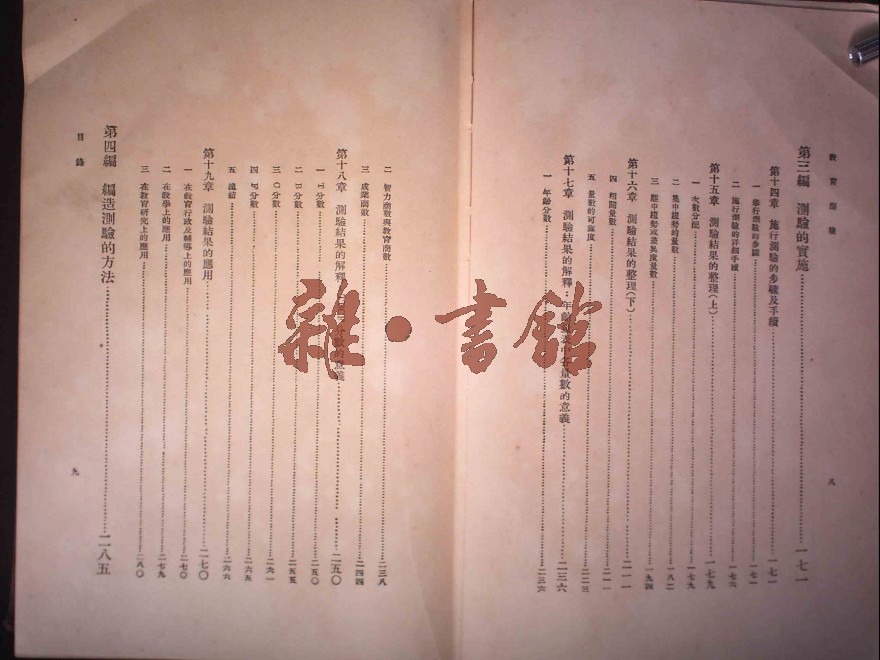 教育測驗
第三編 測驗的實施……一七一
第十四章 施行測驗的步驟及手續……一七一
一 舉行測驗的步驟……一七一
二 施行測驗的詳細手續……一七六
第十五章 測驗結果的整理(上)……一七九
一 次數分配……一七九
二 集中趨勢的量數……一八二
三 離中趨勢或差異度量數……一九四
第十六章 測驗結果的整理(下)……二一一
四 相關量數……二一一
五 量數的可靠度……二二三
第十七章 測驗結果的解釋:年齡量表中各量數的意義……二三六
一 年齡分數……二三六
八
二 智力商數與教育商數……二三八
三 成業商數……二四四
第十八章 測驗結果的解釋 分數的意義……二五〇
一 T分數……二五〇
二 B分數……二五五
三 C分數……二六一
四 F分數……二六五
五 總結……二六六
第十九章 測驗結果的應用……二七〇
一 在教育行政及輔導上的應用……二七〇
二 在教學上的應用……二七九
三 在教育研究上的應用……二八〇
第四編 編造測驗的方法……二八五
目錄
九
雜·書館